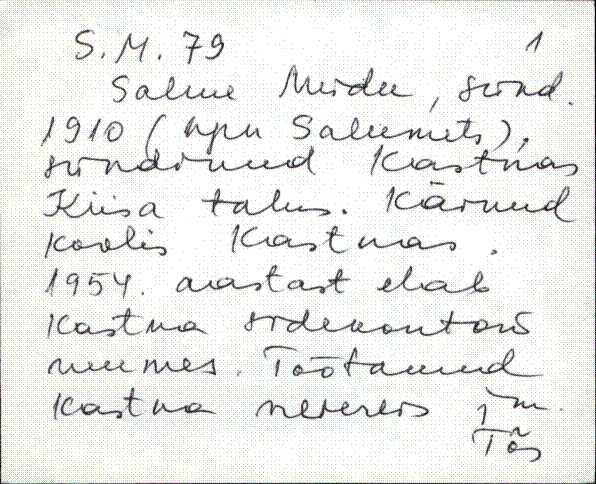 S.M. 79 1
Salme Mirdu, sünd.
1910 (npn Salumets),
sündinud Kastnas
Kiisa talus. Käinud
koolis Kastnas.
1954. aastast elab
Kastna sidekontori
ruumes. Töötanud
Kastna meiereis j.m.
Tõs